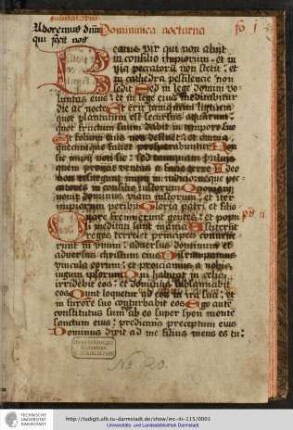 Adoremus dnm Dominica nocturna
fo i
qui fecit nos
Beatus vir qui non abijt
in consilio impiorum et in
via peccatorum non stetit et
in cathedra pestilencie non
sedit Sed in lege domini vo
luntas eius et in lege eius meditabitur
die ac nocte Et erit tamquam lignum
quod plantatum est secus
quod fructum suum dabit in tempore suo
Et folium eius non defluet et omnia
quecumque faciet prosperabuntur Non
sic impij non sic sed tamquam puluis
quem proicit ventus a facie terre Ideo
non resurgunt impij in iudicio neque pec
catores in consilio iustorum Quoniam
nouit dominus viam iustorum et iter
impiorum peribit Gloria patri et filio
Quare fremuerunt gentes et popu
li meditati sunt inania Astiterunt
reges terre et principes conuene
runt in vnum aduersus dominum et
aduersus christum eius Disrumpamus
vincula eorum et proiciamus a nobis
iugum ipsorum Qui habitat in celis
irridebit eos et dominus subsannabit
eos Tunc loquetur ad eos in ira sua et
in furore suo conturbabit eos Ego autem
constitutus sum ab eo super syon montem
sanctum eius predicans preceptum eius
Dominus dixit ad me filius meus es tu
No 20.
TECHNISCHE
UNIVERSITÄT
DARMSTADT
http://tudigit.ulb.tu-darmstadt.de/show/inc-iii-115/0001
Universitäts- und Landesbibliothek Darmstadt